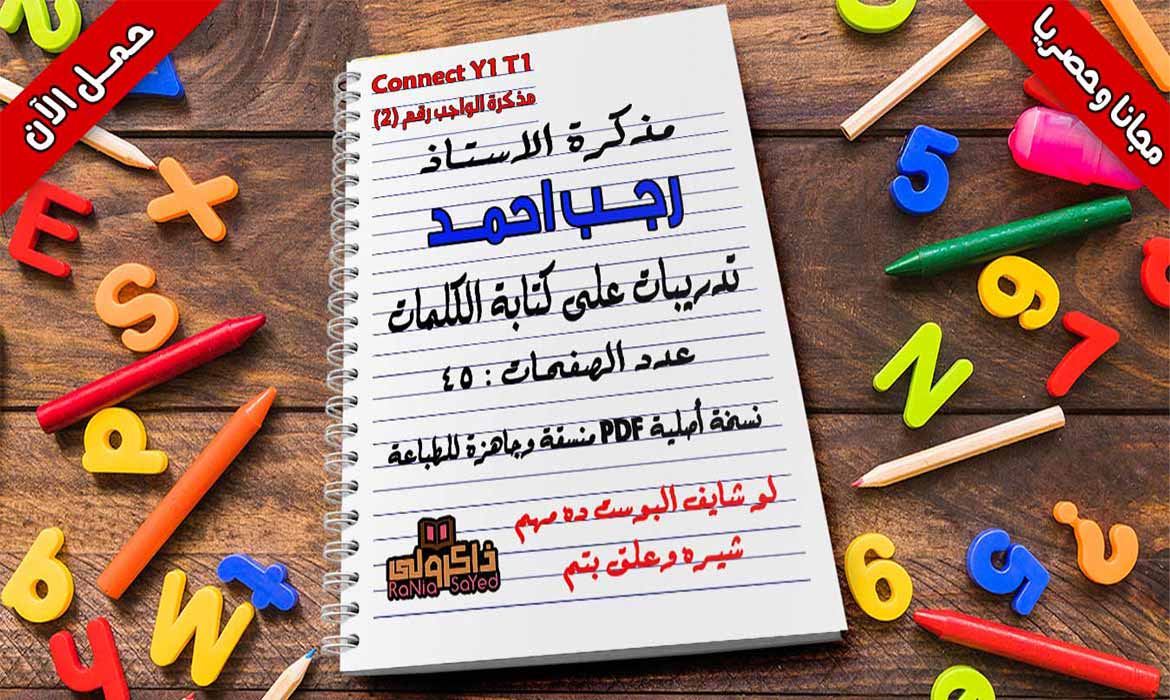 حمل الآن
مجانا وحصريا
Connect Y1 T1
مذكرة الواجب رقم (2)
مذكرة الاستاذ
رجب احمد
تدريبات على كتابة الكلمات
عدد الصفحات : ٤٥
نسخة أصلية PDF منسقة وجاهزة للطباعة
لو شايف البوست ده مهم
شيره وعلق بتم
ذاكرولى
RaNia SaYed